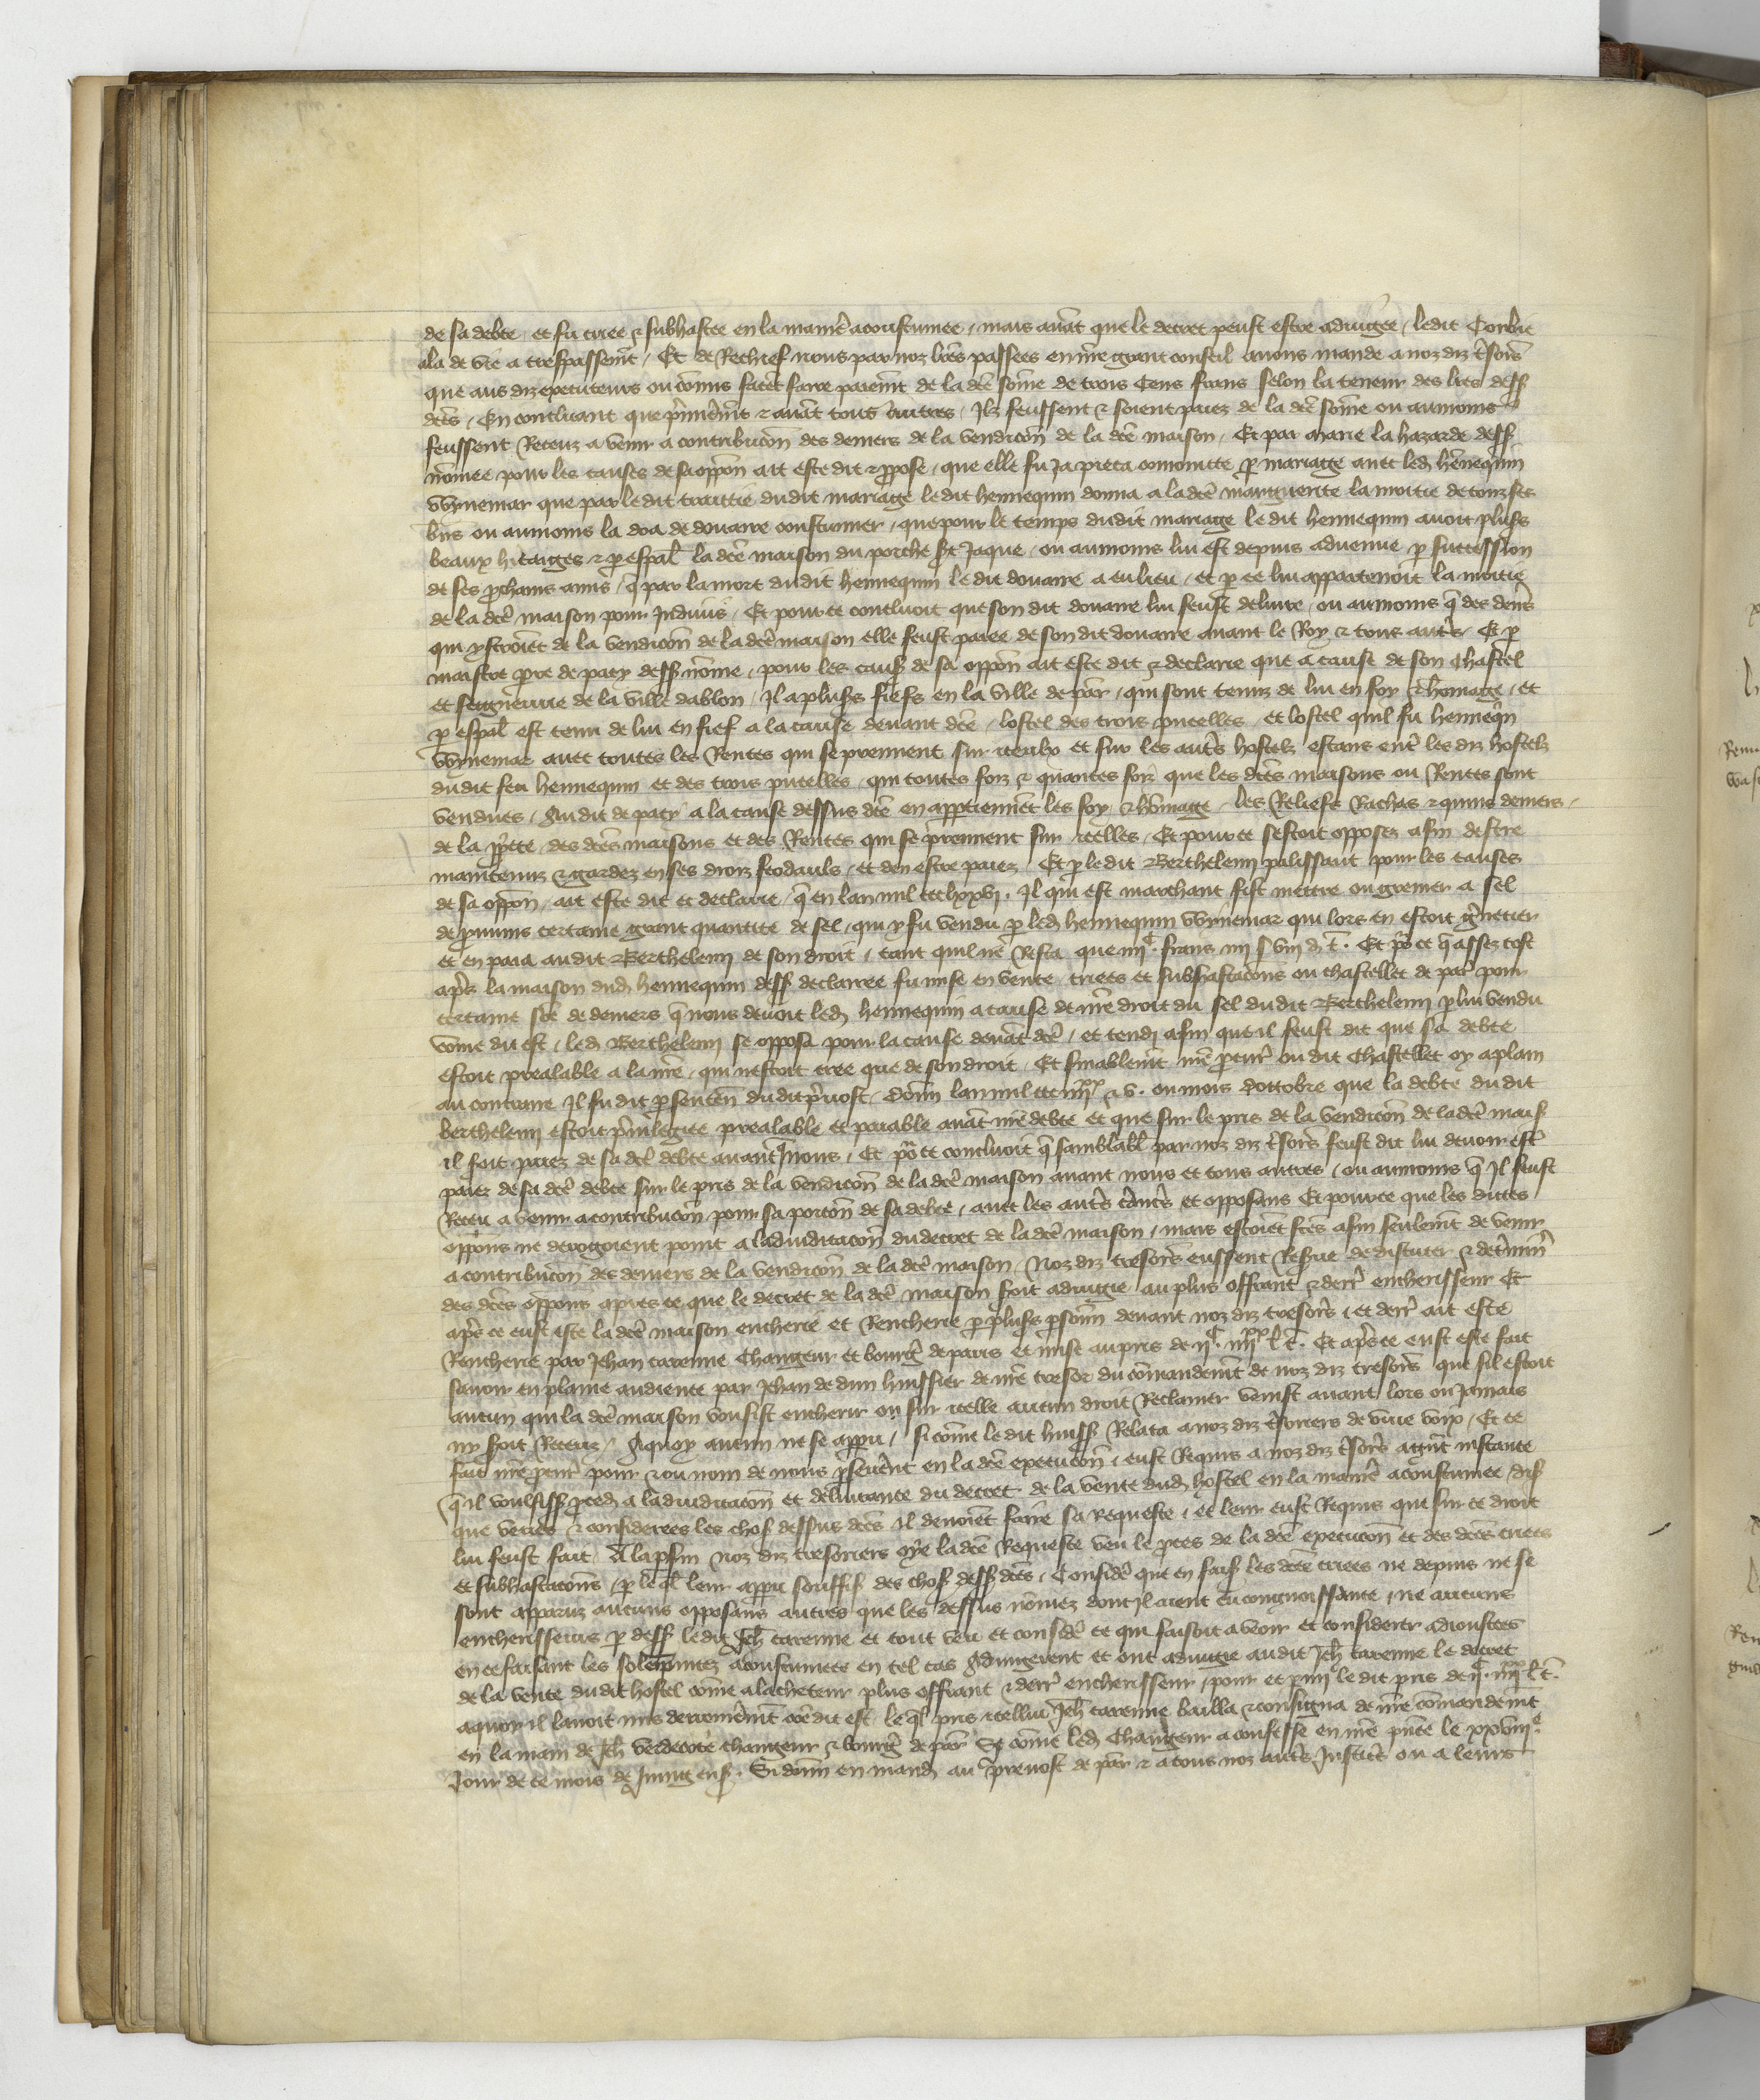 de sa debte et fu criee & subhastee en la manie᷒ acoustumee / mais auāt que le decret peust estre adiugee / ledit Corbie
ala de vie a trespassemt / Et de Rechief nous par noz lres passees en nre grant conseil auons mande a noz diz tsors
que aus diz executeurs ou cōmis facēt faire paiemt de la dce sōme de trois Cens frans selon la teneur des lres dess
dces / En concluant que p̄mieremt & auāt tous autres / Ilz feussent & soient paiez de la dce sōme ou aumoins
feussent Receuz a venir a contribucōn des deniers de la vendicōn de la dce maison / Et par marie la hazarde dess
nōmee pour les causes de sa oppōn ait este dit & p̄pose / que elle fu Ja pieca conioincte p mariage auec led hēnequin
Wynemar que par le dit traittie dudit mariage le dit hennequin donna a la dce marguerite la moitie de touz ses
biēs ou aumoins la doa de douaire coustumier / que pour le temps dudit mariage le dit hennequin auoit plus͛s
beaux hitaiges & p espal la dce maison du porche st Jaque / ou aumoins lui est depuis aduenue p succession
de ses p̄chains amis / q par la mort dudit hennequin le dit douaire a eu lieu / et p ce lui appartenoit la moitie
de la dce maison pour Indiuis / Et pour ce concluoit que son dit douaire lui feust deliure / ou aumoins q des dens
qui ystroiēt de la vendicōn de la dce maison elle feust paiee de son dit douaire auant le Roy & tous autrs / Et p
maistre pre de pacy dess nōme / pour les caus de sa oppōn ait este dit & declarie que a cause de son chastel
et seigneurie de la ville dablon / Il a plus͛s fiefs en la ville de par / qui sont tenuz de lui en foy & homage / et
p espal est tenu de lui en fief a la cause deuant dce / lostel des trois pucelles / et lostel quil fu hennequin
Wynemar auec toutes les Rentes qui se prennent sur iceulx et sur les autrs hostelz estans entr les diz hostelz
dudit feu hennequin et des trois pucelles / qui toutes foiz & quantes foiz que les dces maisons ou Rentes sont
vendues / Audit de pacy a la cause dessus dce en appartienēt les foy & hōmage / les Reliefs Rachas & quins deniers /
de la p̄iete des dces maisons et des Rentes qui se prennent sur icelles / Et pour ce sestoit opposez afin destre
maintenuz & gardez en ses droiz feodaulx / et den estre paiez / Et p le dit Berthelemi palissaut pour les causes
de sa oppōn / ait este dit et declarie / q en lan mil ccclxxvj. Il qui est marchant fist mettre ou grenier a sel
de prouuins certaine grant quantite de sel / qui y fu vendu p led hennequin Wynemar qui lors en estoit gnetier
et en paia audit Berthelemi de son droit / tant quil nen Resta que iiijc. frans iiij s viij d t. Et po ce q assez tost
aprs la maison dud hennequin dess declairee fu mise en vente / criees et subhastacōns ou chastellet de par pour
certaine sōe de deniers q nous deuoit led hennequin a cause de nre droit du sel dudit Berthelemi p lui vendu
cōme du est / led Berthelemi se opposa pour la cause deuāt dce / et tendi afin que il feust dit que sa debte
estoit prealable a la nre / qui nestoit cree que de son droit / Et finablemt nre pcur ou dit Chastellet oy aplain
au contraire Il fu dit p sentēn du dit p̄uost / dōm lan mil ccciiijxx & v. ou mois dottobre que la debte du dit
berthelemi estoit p̄uilegiee prealable et paiable auāt nre debte et que sur le pris de la vendicōn de la dce mais
il soit paiez de sa dce debte auant nous / Et po ce concluoit q samblabl par noz diz tsors feust dit lui deuoir estr
paiez de sa dce debte sur le pris de la vendicōn de la dce maison auant nous et tous autres / ou aumoins q Il feust
Receu a venir a contribucōn pour sa porcōn de sa debte / auec les autrs creāncrs et opposans Et pour ce que les dittes
oppōns ne derogoient point a ladiudicacōn du decret de la dce maison / mais estoiēt fces afin seulemt de venir
a contribucōn des deniers de la vendicōn de la dce maison / Noz diz tresors eussent Resue de discuter & detminr
des dces oppōns apres ce que le decret de la dce maison soit adiugie au plus offrant & derr encherisseur Et
aprs ce eust este la dce maison encherie et Rencherie p plus͛s psōnn deuant noz diz tresors / et derr ait este
Rencherie par Jehan tarenne Changeur et bourg de paris et mise au pris de ijc. iiijxx l t. Et aprs ce eust este fait
sauoir en plaine audience par Jehan de dun huissier de nre tresor du cōmandemt de noz diz tresors que sil estoit
aucun qui la dce maison voulsist encherir ou sur icelle aucun droit Reclamer venist auant lors ou Jamais
ny soit Receuz / Aquoy aucun ne se appu / si cōme le dit huiss Relata a noz diz tsoriers de viue voix / Et ce
fait nre pcur pour & ou nom de nous p̄seuent en la dce execucōn / eust Requis a noz diz tsors a grnt instance
q il voulsiss pced a ladiudicacōn et deliurance du decret de la vente dud hostel en la manie acoustumee / dis
que veues & considerees les chos dessus dces il deuoiēt faire sa requeste / et leur eust Requis que sur ce droit
lui feust fait / A la pfin noz diz tresoriers oye la dce Requeste veu le pces de la dce execucōn et des dces criees
et subhastacōns / p le ql leur appu souffis des chos dess dces / Considē que en fais les dces criees ne depuis ne se
sont apparuz aucuns opposans autres que les dessus nōmez dont Il aient eu congnoissance / ne aucuns
encherisseurs p dess ledit Jeh tarenne et tout veu et considē ce qui faisoit a veoir et considerer adioustees
en ce faisant les solempnitez acoustumees en tel cas Adiugerent et ont adiugie audit Jeh tarenne le decret
de la vente dudit hostel cōme a lacheteur plus offrant & derr encherisseur / pour et pmi le dit pris de ijc. iiijxx l t.
aquoy il lauoit mis derrenieremt cōe dit est / le ql pris icellui Jeh tarenne bailla & consigna de nre cōmandemt
en la main de Jeh Verdecote changeur & bourg de par Si cōme led Changeur a confesse en nre pnce le xxviije.
Jour de ce mois de Juing cus. Si dōnn en mand au preuost de par & a tous noz autrs Justics ou a leurs